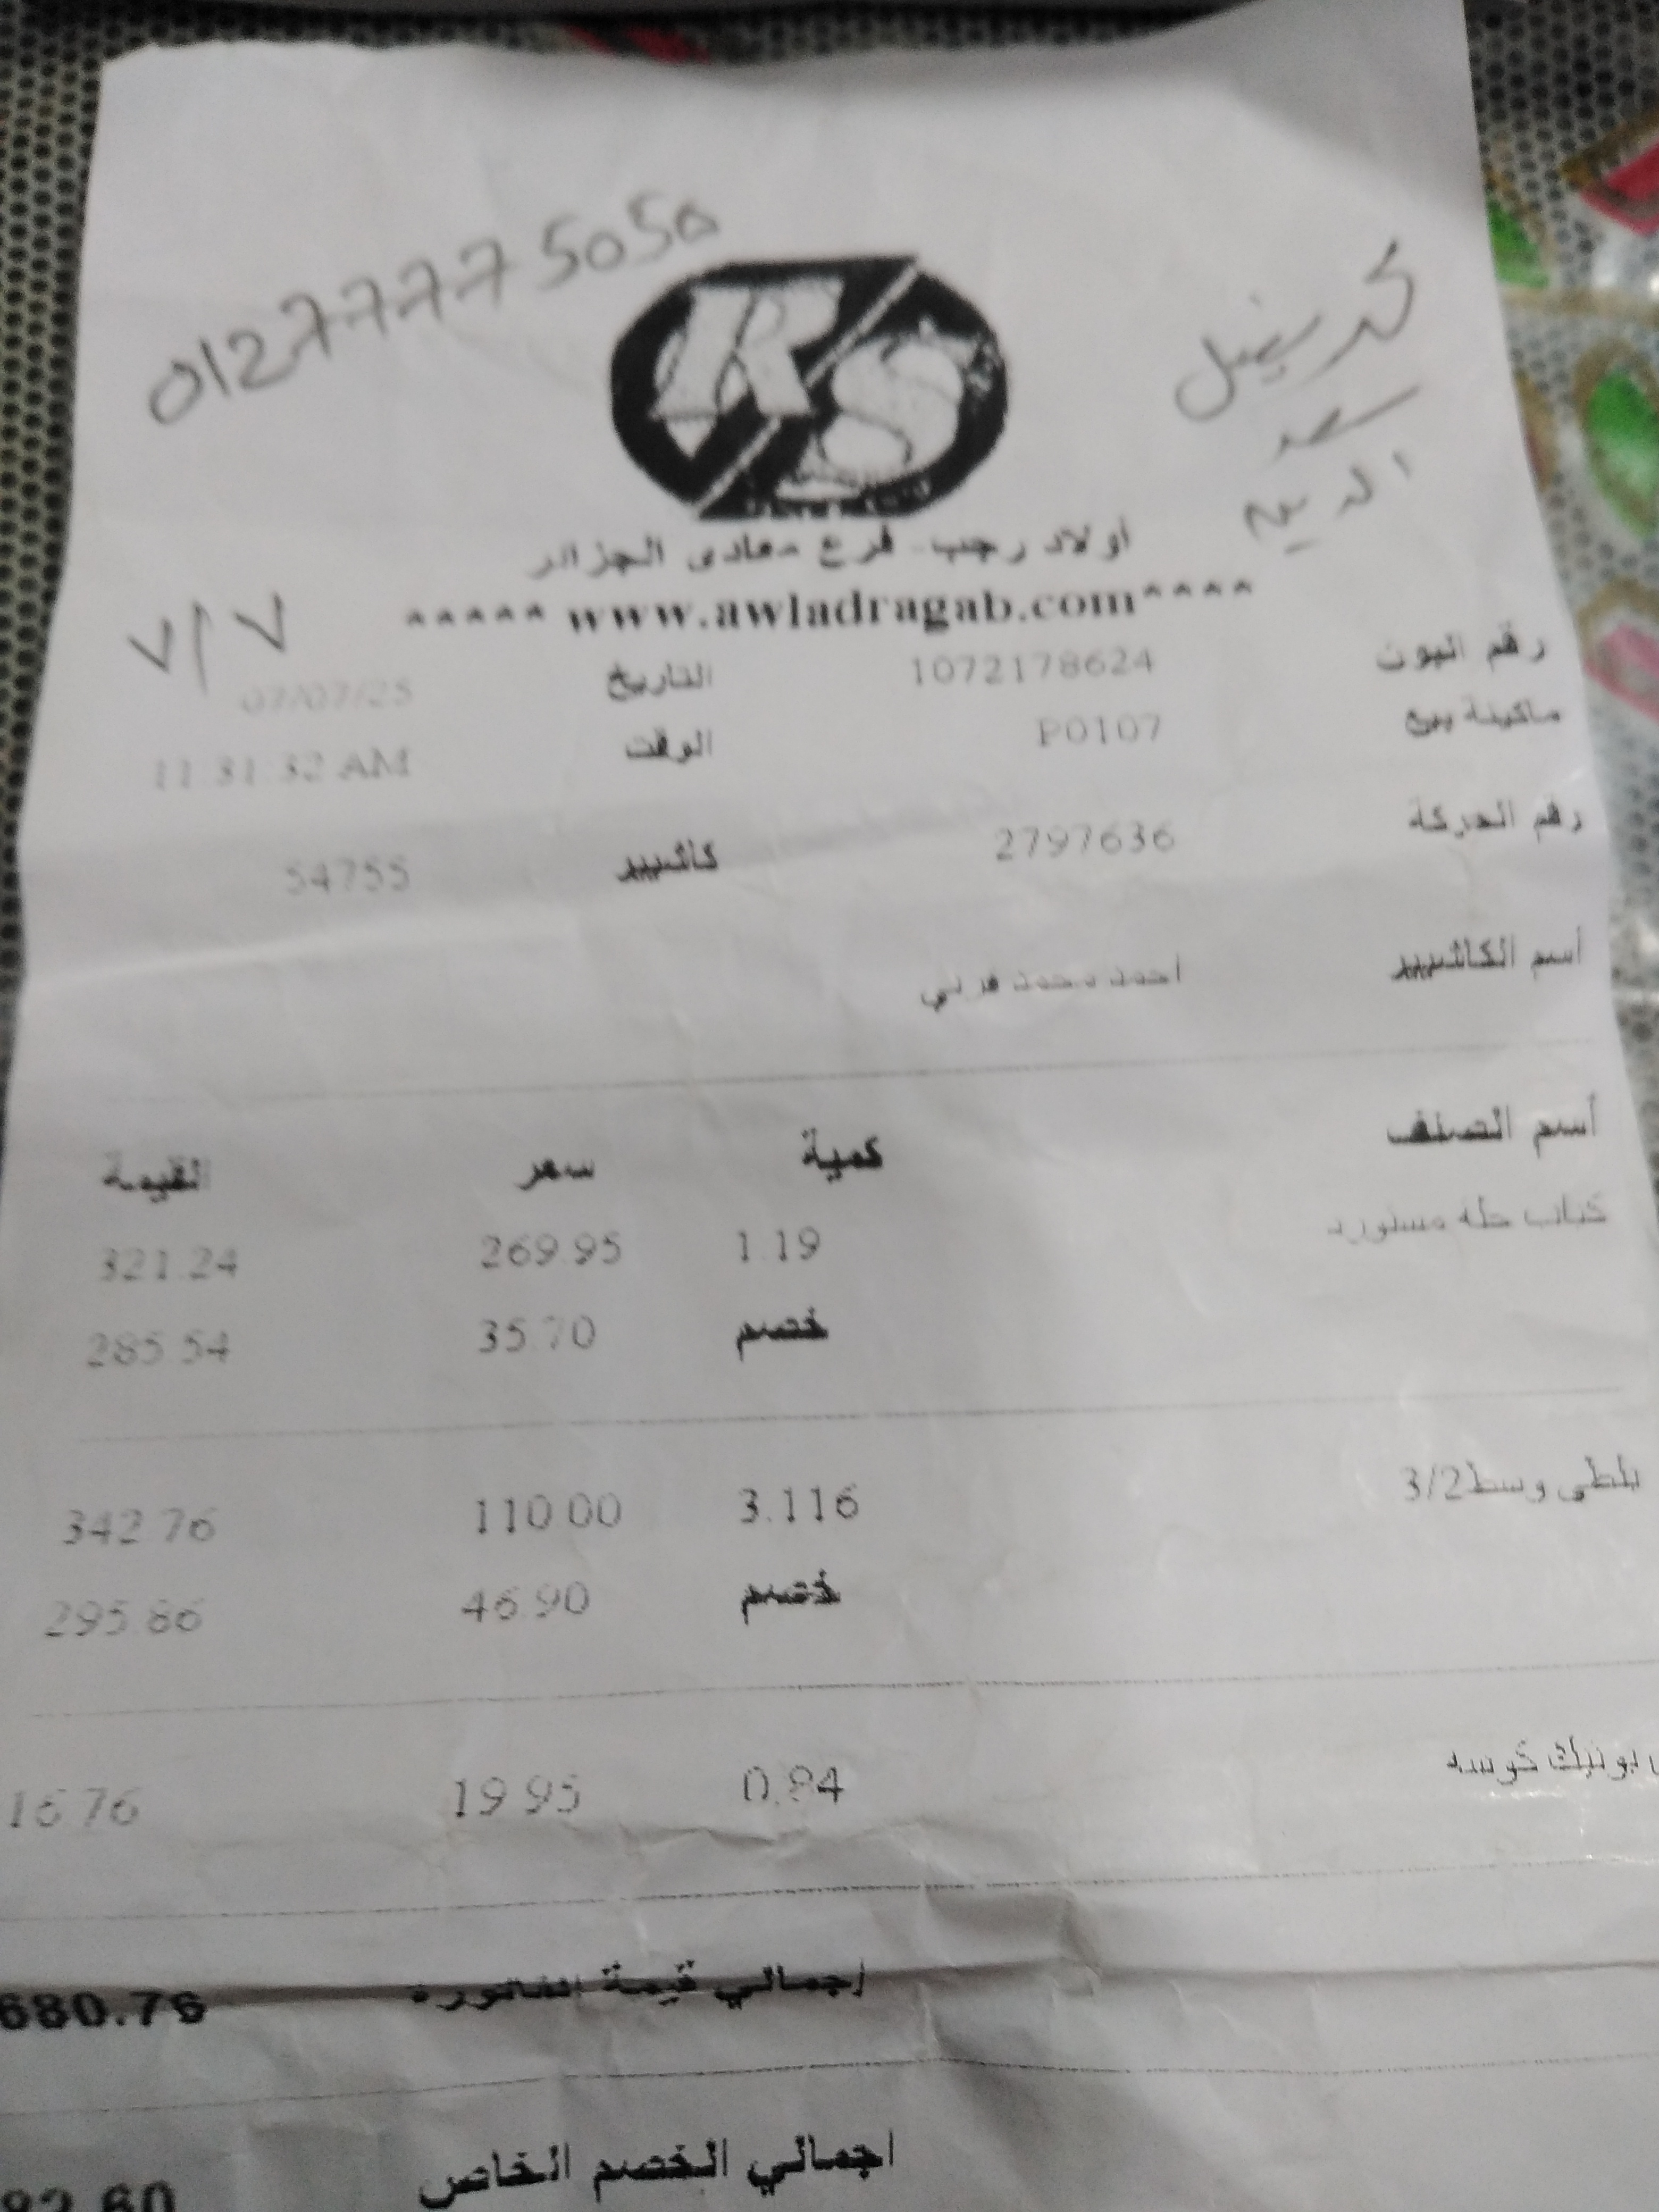 01277775050
سعد
RS
أولاد رجب- فرع معادى الجزائر
***** www.awladragab.com ****
٧/٧
رقم البون 1072178624 التاريخ 07/07/25
ماكينة بيع P0107 الوقت 11:31:32 AM
رقم الحركة 2797636 كاشيير 54755
أسم الكاشيير احمد محمد
أسم الصنف كمية سعر القيمة
كباب حله مستورد 1.19 269.95 321.24
خصم 35.70 285.54
بلطى وسط3/2 3.116 110.00 342.76
خصم 46.90 295.86
كوسه 0.84 19.95 16.76
إجمالي قيمة الفاتورة 680.76
اجمالي الخصم الخاص 82.60